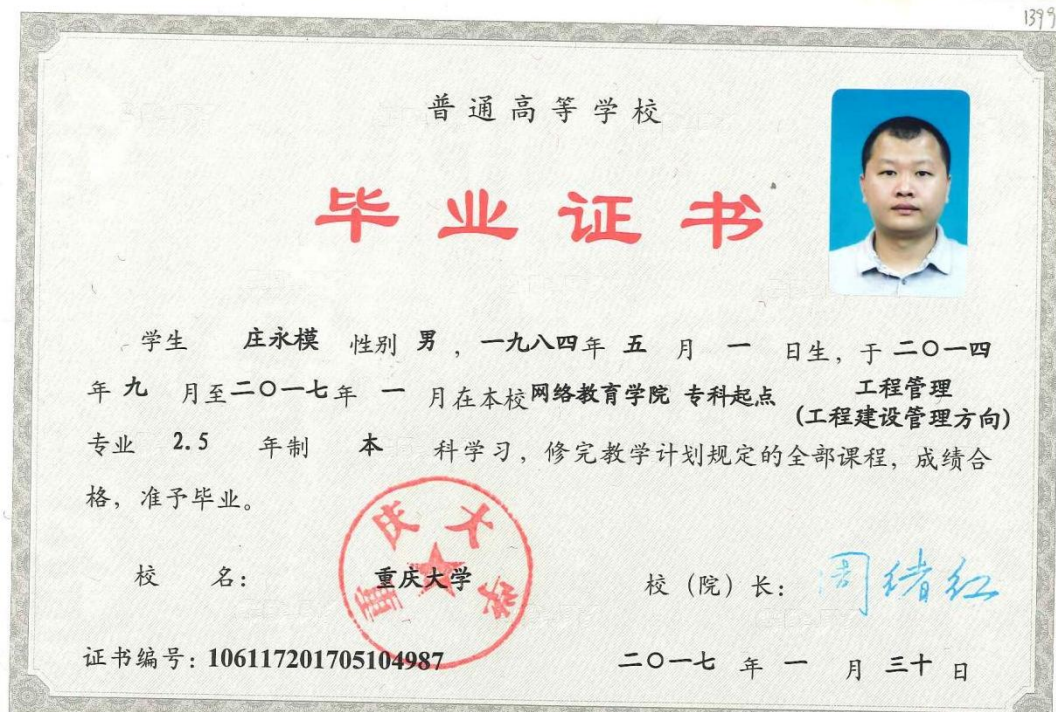 1399
普通高等学校
毕业证书
学生 庄永模 性别 男 ，一九八四年 五 月 一 日生，于 二〇一四
年 九 月至二〇一七年 一 月在本校网络教育学院 专科起点 工程管理
(工程建设管理方向)
专业 2.5 年制 本 科学习，修完教学计划规定的全部课程，成绩合
格，准予毕业。
校 名： 重庆大学 校（院）长： 周绪红
重庆大学
证书编号：106117201705104987 二〇一七 年 一 月 三十 日